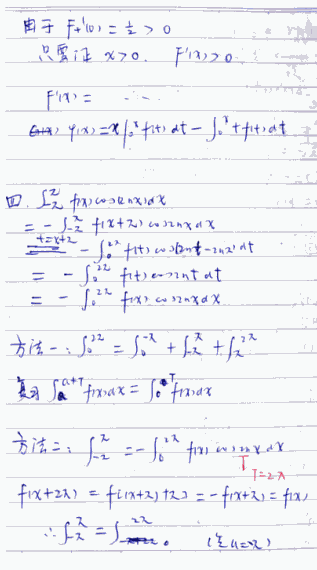 由于 F₊'(0) = 1/2 > 0
只要证 x>0. F'(x)>0
F'(x) = ...
φ(x) = x∫₀ˣ f(t) dt − ∫₀ˣ t f(t) dt
四. ∫₋πᵖⁱ f(x) cos2nx dx
= − ∫₋πᵖⁱ f(x+π) cos2nx dx
t=x+π − ∫₀²π f(t) cos(2nt−2nπ) dt
= − ∫₀²π f(t) cos2nt dt
= − ∫₀²π f(x) cos2nx dx
方法一: ∫₀²π = ∫₀⁻π + ∫₋πᵖⁱ + ∫π²π
复习 ∫ₐᵃ⁺ᵀ f(x)dx = ∫₀ᵀ f(x)dx
方法二: ∫₋πᵖⁱ = − ∫₀²π f(x) cos2nx dx
T=2π
f(x+2π) = f[(x+π)+π] = −f(x+π) = f(x)
∴ ∫₋πᵖⁱ = ∫₀²π. (a=π)